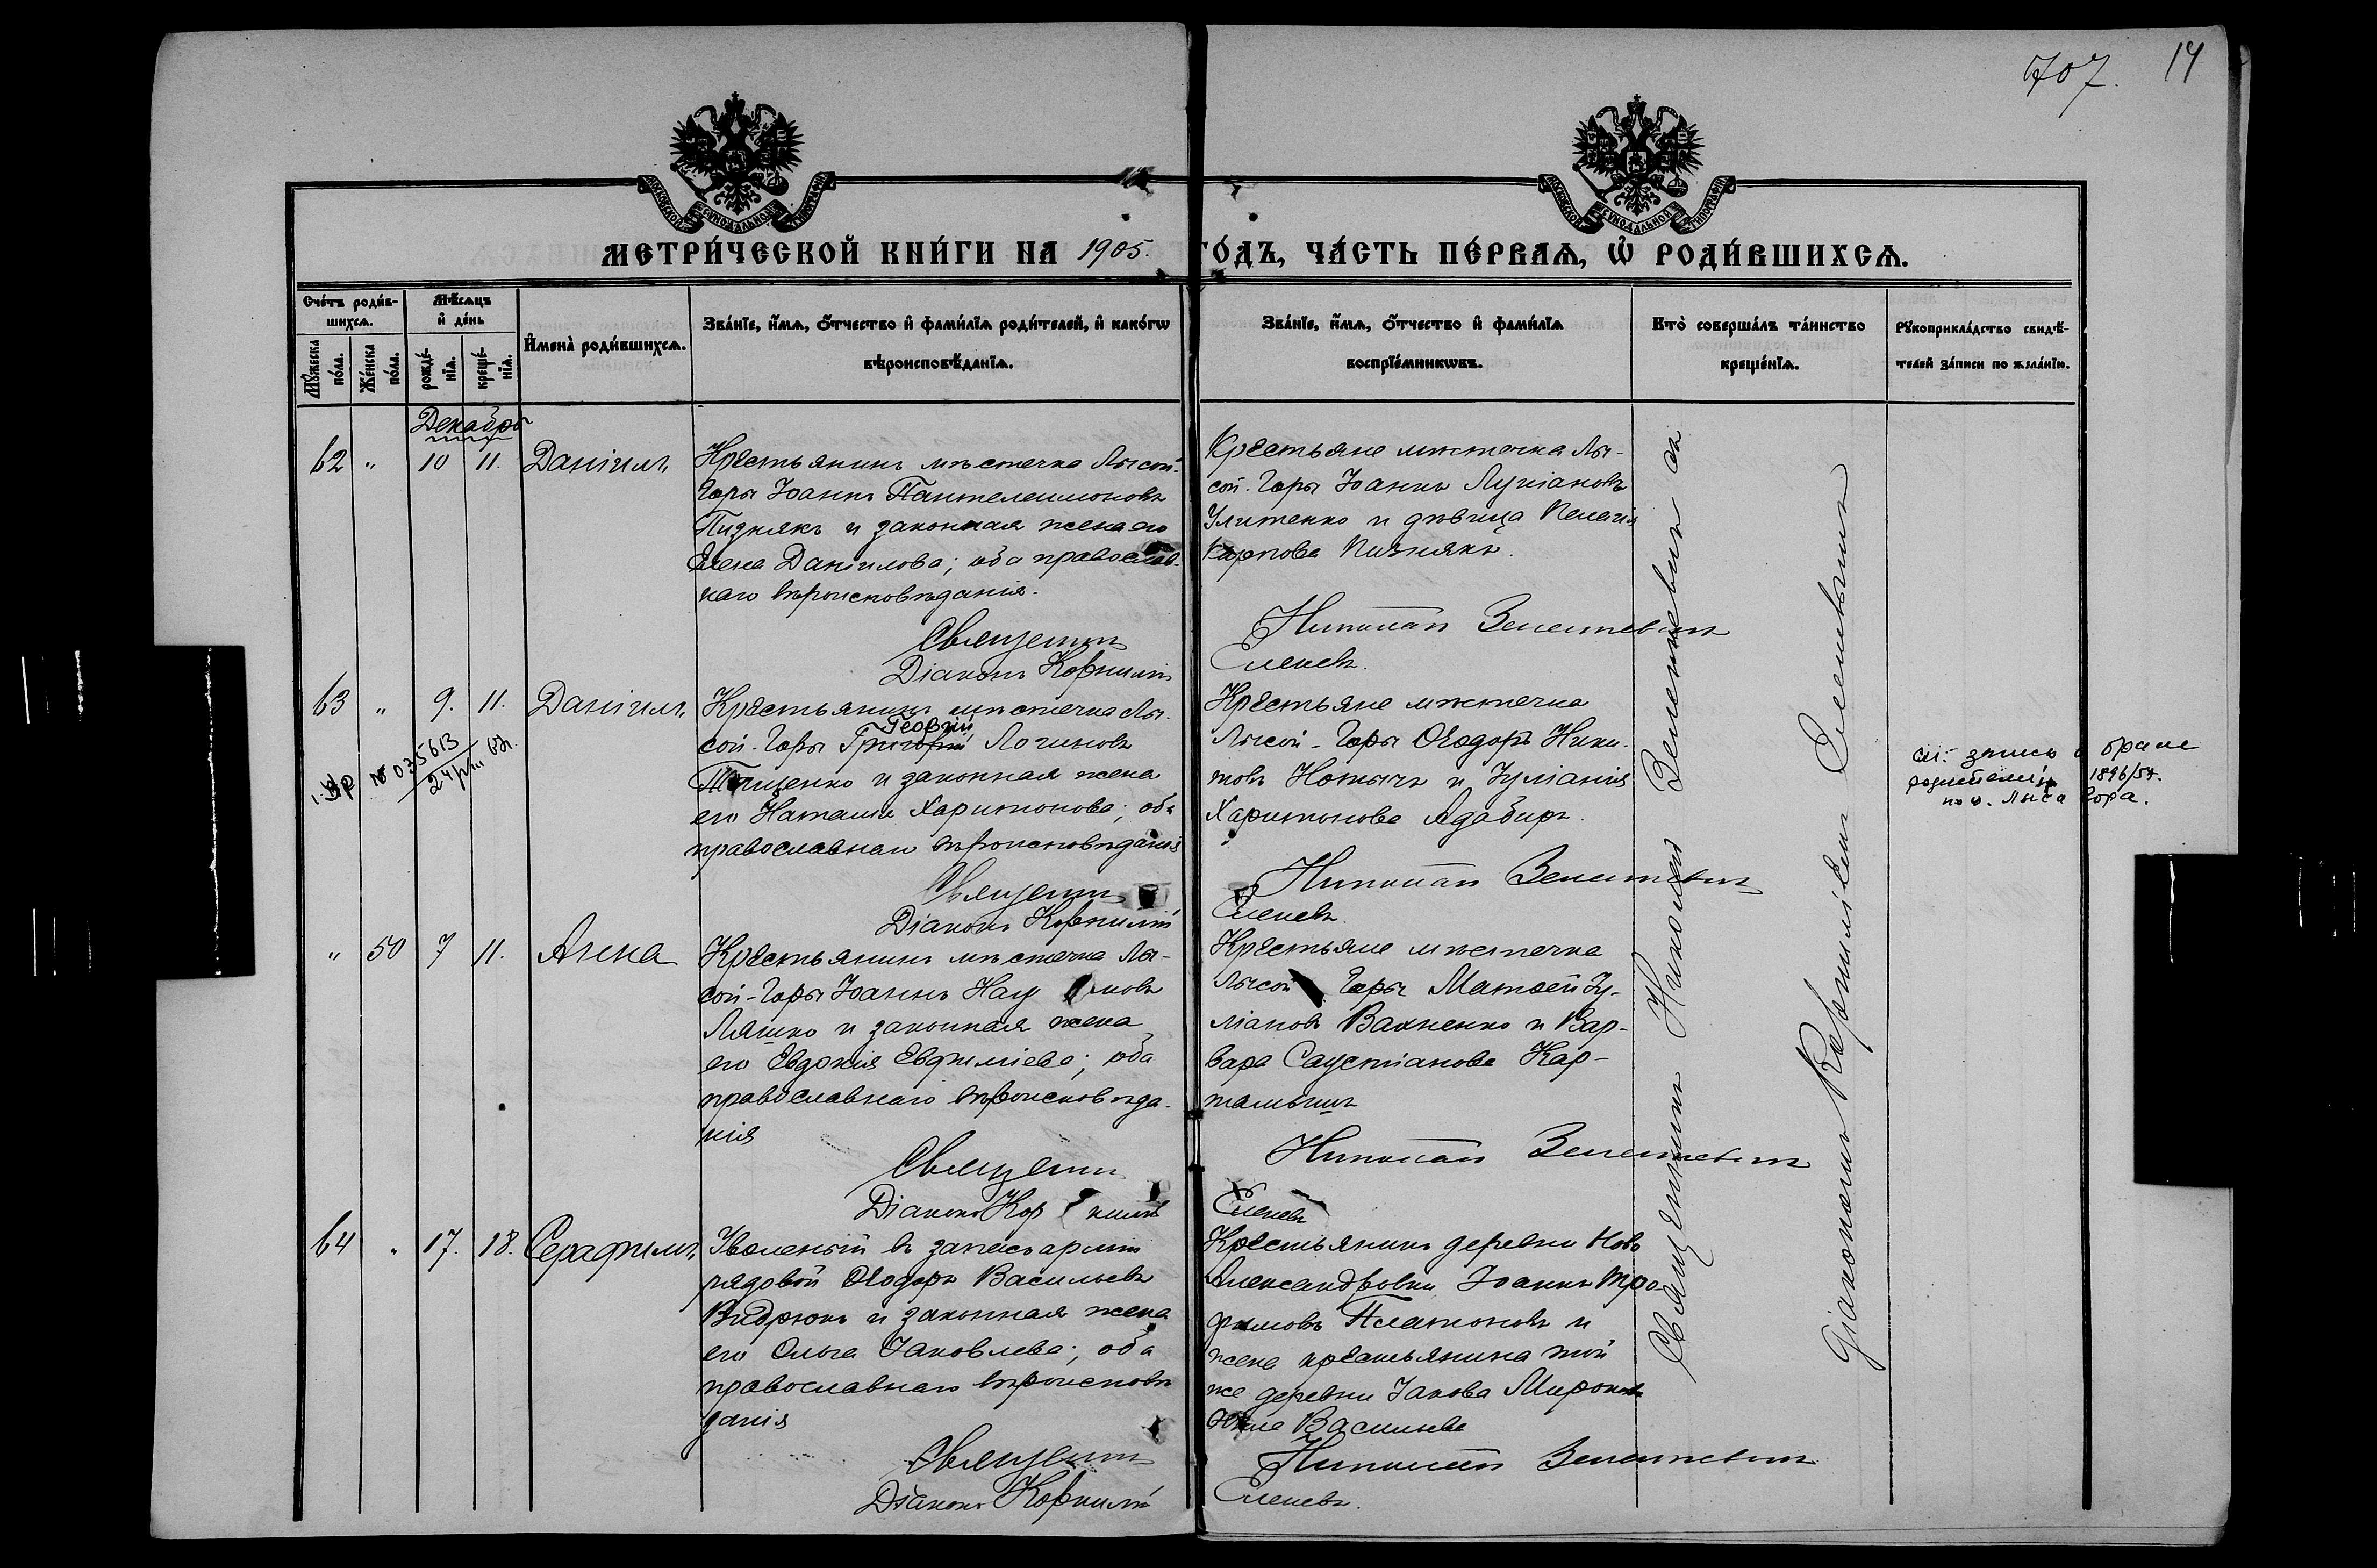 707. 14
МОСКОВСКОЙ СѴНОДАЛЬНОЙ ТИПОГРАФІИ
МОСКОВСКОЙ СѴНОДАЛЬНОЙ ТИПОГРАФІИ
МЕТРИ́ЧЕСКОЙ КНИ́ГИ НА 1905. ГО́ДЪ, ЧА́СТЬ ПЕ́РВАѦ, Ѡ РОДИ́ВШИХСѦ.
Сче́тъ роди́в-
шихсѧ.
Мꙋ́жеска по́ла.
Же́нска по́ла.
Мѣ́сѧцъ
и҆ де́нь
рожде́-
нїѧ.
креще́-
нїѧ.
И҆мена̀ роди́вшихсѧ.
Зва́нїе, и҆́мѧ, ѻ҆́тчество и҆ фами́лїѧ роди́телей, и҆ како́гѡ
вѣроисповѣ́данїѧ.
Зва́нїе, и҆́мѧ, ѻ҆́тчество и҆ фами́лїѧ
воспрїе́мникѡвъ.
Кто̀ соверша́лъ та́инство
креще́нїѧ.
Рꙋкоприкла́дство свидѣ́-
телей за́писи по жела́нїю.
Декабрь
62 " 10 11. Даніилъ
Крестьянинъ мѣстечка Лысой-
Горы Іоаннъ Пантелеимоновъ
Пизнякъ и законная жена его
Елена Даніилова; оба православ-
наго вѣроисповѣданія.
Священникъ
Діаконъ Корнилій
Крестьяне мѣстечка Лы-
сой-Горы Іоаннъ Лукіановъ
Улитенко и дѣвица Пелагія
Карпова Пизнякъ.
Николай Зеленкевичъ
Еленевъ.
63 " 9. 11. Даніилъ
№ 035613
Крестьянинъ мѣстечка Лы-
Георгій
сой-Горы Григорій Логиновъ
Тищенко и законная жена
его Наталія Харитонова; оба
православнаго вѣроисповѣданія
Священникъ
Діаконъ Корнилій
Крестьяне мѣстечка
Лысой-Горы Ѳеодоръ Ники-
товъ и Іуліанія
Харитонова
Николай Зеленкевичъ
Еленевъ.
см. запись о браке
родителей 1896/57.
по м. Лыса Гора.
" 50 7 11. Анна
Крестьянинъ мѣстечка Лы-
сой-Горы Іоаннъ Наумовъ
Ляшко и законная жена
его Евдокія Евфиміева; оба
православнаго вѣроисповѣда-
нія
Священникъ
Діаконъ Корнилій
Крестьяне мѣстечка
Лысой Горы Матѳей Іу-
ліановъ Вахненко и Вар-
вара Саустіанова Кар-
Николай Зеленкевичъ
Еленевъ
64 " 17. 18. Серафимъ
Уволеный въ запасъ арміи
рядовой Ѳеодоръ Васильевъ
Видрюкъ и законная жена
его Ольга Іаковлева; оба
православнаго вѣроисповѣ
данія
Священникъ
Діаконъ Корнилій
Крестьянинъ деревни Ново
Александровки Іоаннъ Тро-
фимовъ Платоновъ и
жена крестьянина той
же деревни Іакова Миронова
Юлія Васильева
Николай Зеленкевичъ
Еленевъ.
Священникъ Николай Зеленкевичъ съ
діакономъ Корниліемъ Еленевымъ